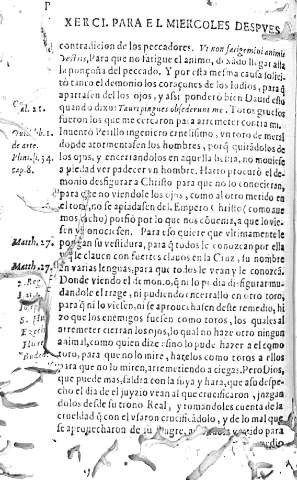 XERCI. PARA EL MIERCOLES DESPVES
contradicion de los peccadores. Vt non fatigemini animis
vestris, Para que no fatigue el animo, dexãdo llegar alla
la ponçoña del peccado. Y por esta mesma causa solici
to tanto el demonio los coraçones de los Iudios, para q̃
apartassen del los ojos, y assi ponderò bien Dauid esto
Psal. 21.
quando dixo: Tauri pingues obsederunt me. Toros gruessos
fueron los que me cercaron para arremeter contra mi.
Inuentò Perillo ingeniero cruelissimo, vn toro de metal
de arte.
donde atormentassen los hombres, para q̃ quitãdolos de
Plin. li. 34.
los ojos, y encerrandolos en aquella bestia, no mouiesse
cap. 8.
a piedad ver padecer vn hombre. Harto procurò el de-
monio desfigurar a Christo para que no lo conociessen,
para que no viendole los ojos, como al otro metido en
el toro, no se apiadassen del. Empero Christo (como aue
mos dicho) porfiò por lo que nos cõuenia, a que lo vies
sen y conociessen. Para esso quiere que vltimamente le
Matth. 27.
pongan su vestidura, para q̃ todos le conozcan por ella
y le clauen con fuertes clauos en la Cruz, su nombre
Matth. 27.
en varias lenguas, para que todos le vean y le conozcã.
Donde viendo el demonio, q̃ ni lo pudo desfigurar mu-
dandole el trage, ni pudiendo encerrallo en otro toro,
para q̃ ni lo viessen, ni se aprouechassen deste remedio, hi
zo que los enemigos fuessen como toros, los quales al
arremeter cierran los ojos, lo qual no haze otro ningun
animal, como quien dize: sino lo pude hazer a el como
toro, para que no lo mire, harelos como toros a ellos
para que no lo miren, arremetiendo a ciegas. Pero Dios,
que puede mas, saldra con la suya y hara, que a su despe-
cho el dia de el juyzio vean al que crucificaron, juzgan
dolos desde su trono Real, y tomandoles cuenta de la
crueldad q̃ con el vsaron crucificãdolo, y de lo mal que
se aprouecharon de su sangre,